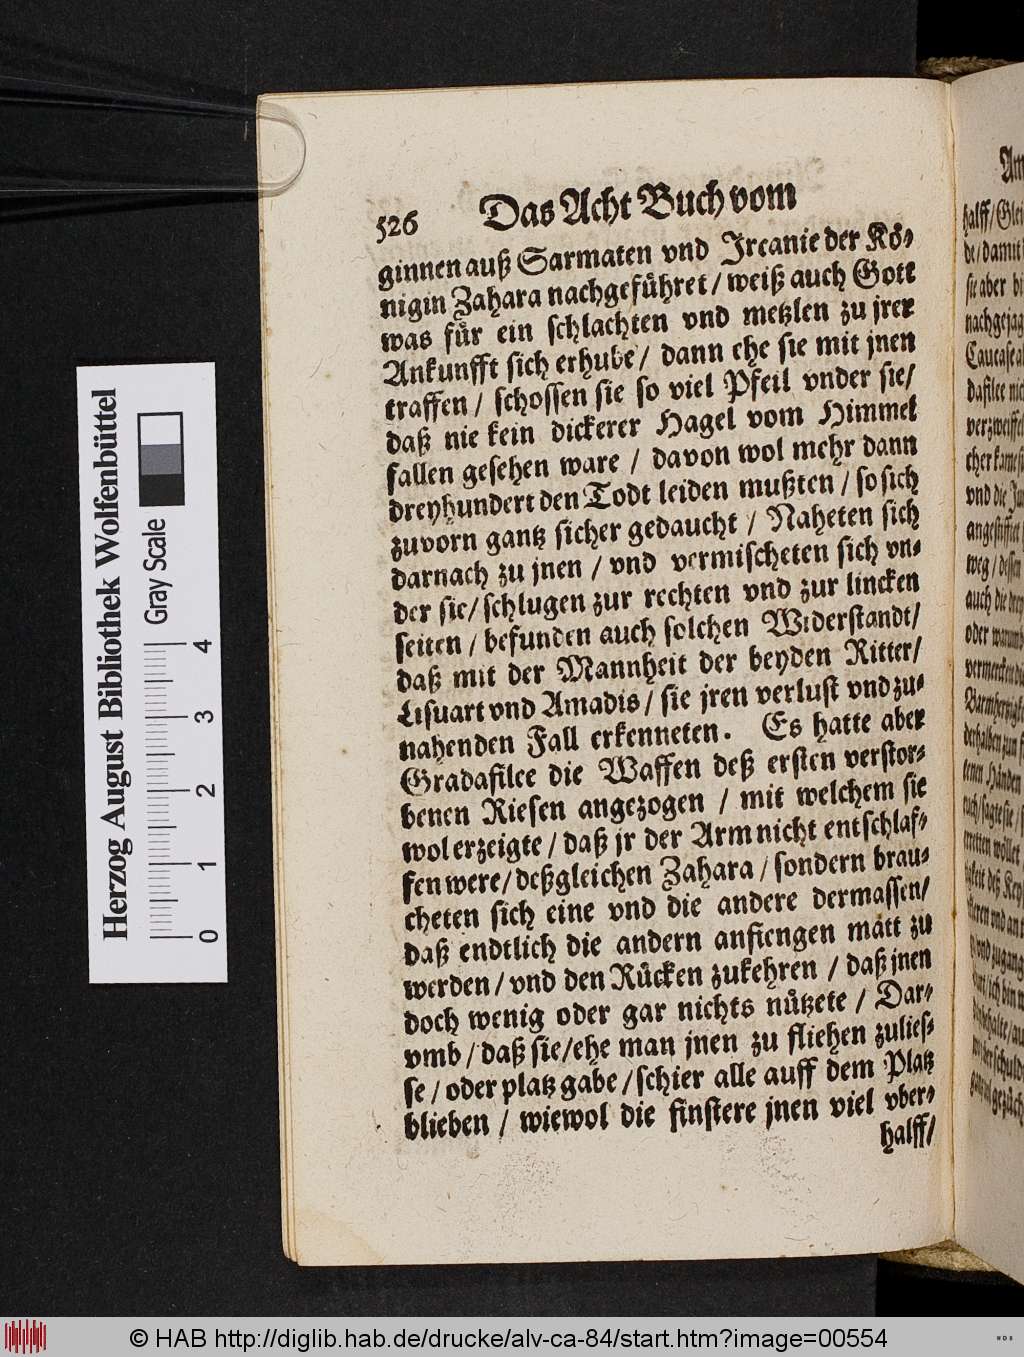 526 Das Acht Buch vom
ginnen auß Sarmaten vnd Ircanie der Kö⸗
nigin Zahara nachgeführet / weiß auch Gott
was für ein schlachten vnd metzlen zu jrer
Ankunfft sich erhube / dann ehe sie mit jnen
traffen / schossen sie so viel Pfeil vnder sie/
daß nie kein dickerer Hagel vom Himmel
fallen gesehen ware / davon wol mehr dann
dreyhundert den Todt leiden mußten / so sich
zuvorn gantz sicher gedaucht / Naheten sich
darnach zu jnen / vnd vermischeten sich vn⸗
der sie/ schlugen zur rechten vnd zur lincken
seiten / befunden auch solchen Widerstandt/
daß mit der Mannheit der beyden Ritter/
Lisuart vnd Amadis / sie jren verlust vnd zu⸗
nahenden Fall erkenneten. Es hatte aber
Gradafilee die Waffen deß ersten verstor⸗
benen Riesen angezogen / mit welchem sie
wol erzeigte / daß jr der Arm nicht entschlaf⸗
fen were/ deßgleichen Zahara / sondern brau⸗
cheten sich eine vnd die andere dermassen/
daß endtlich die andern anfiengen matt zu
werden / vnd den Rücken zukehren / daß jnen
doch wenig oder gar nichts nützete / Dar⸗
vmb / daß sie/ehe man jnen zu fliehen zulies⸗
se / oder platz gabe / schier alle auff dem Platz
blieben / wiewol die finstere jnen viel vber⸗
halff/
Am
halff/ Glei
de/ damit
sie aber
nachgejag
dafilee
vnd die
weg / dessen
auch die
oder
Herzog August Bibliothek Wolfenbüttel
Gray Scale
0 1 2 3 4
© HAB http://diglib.hab.de/drucke/alv-ca-84/start.htm?image=00554